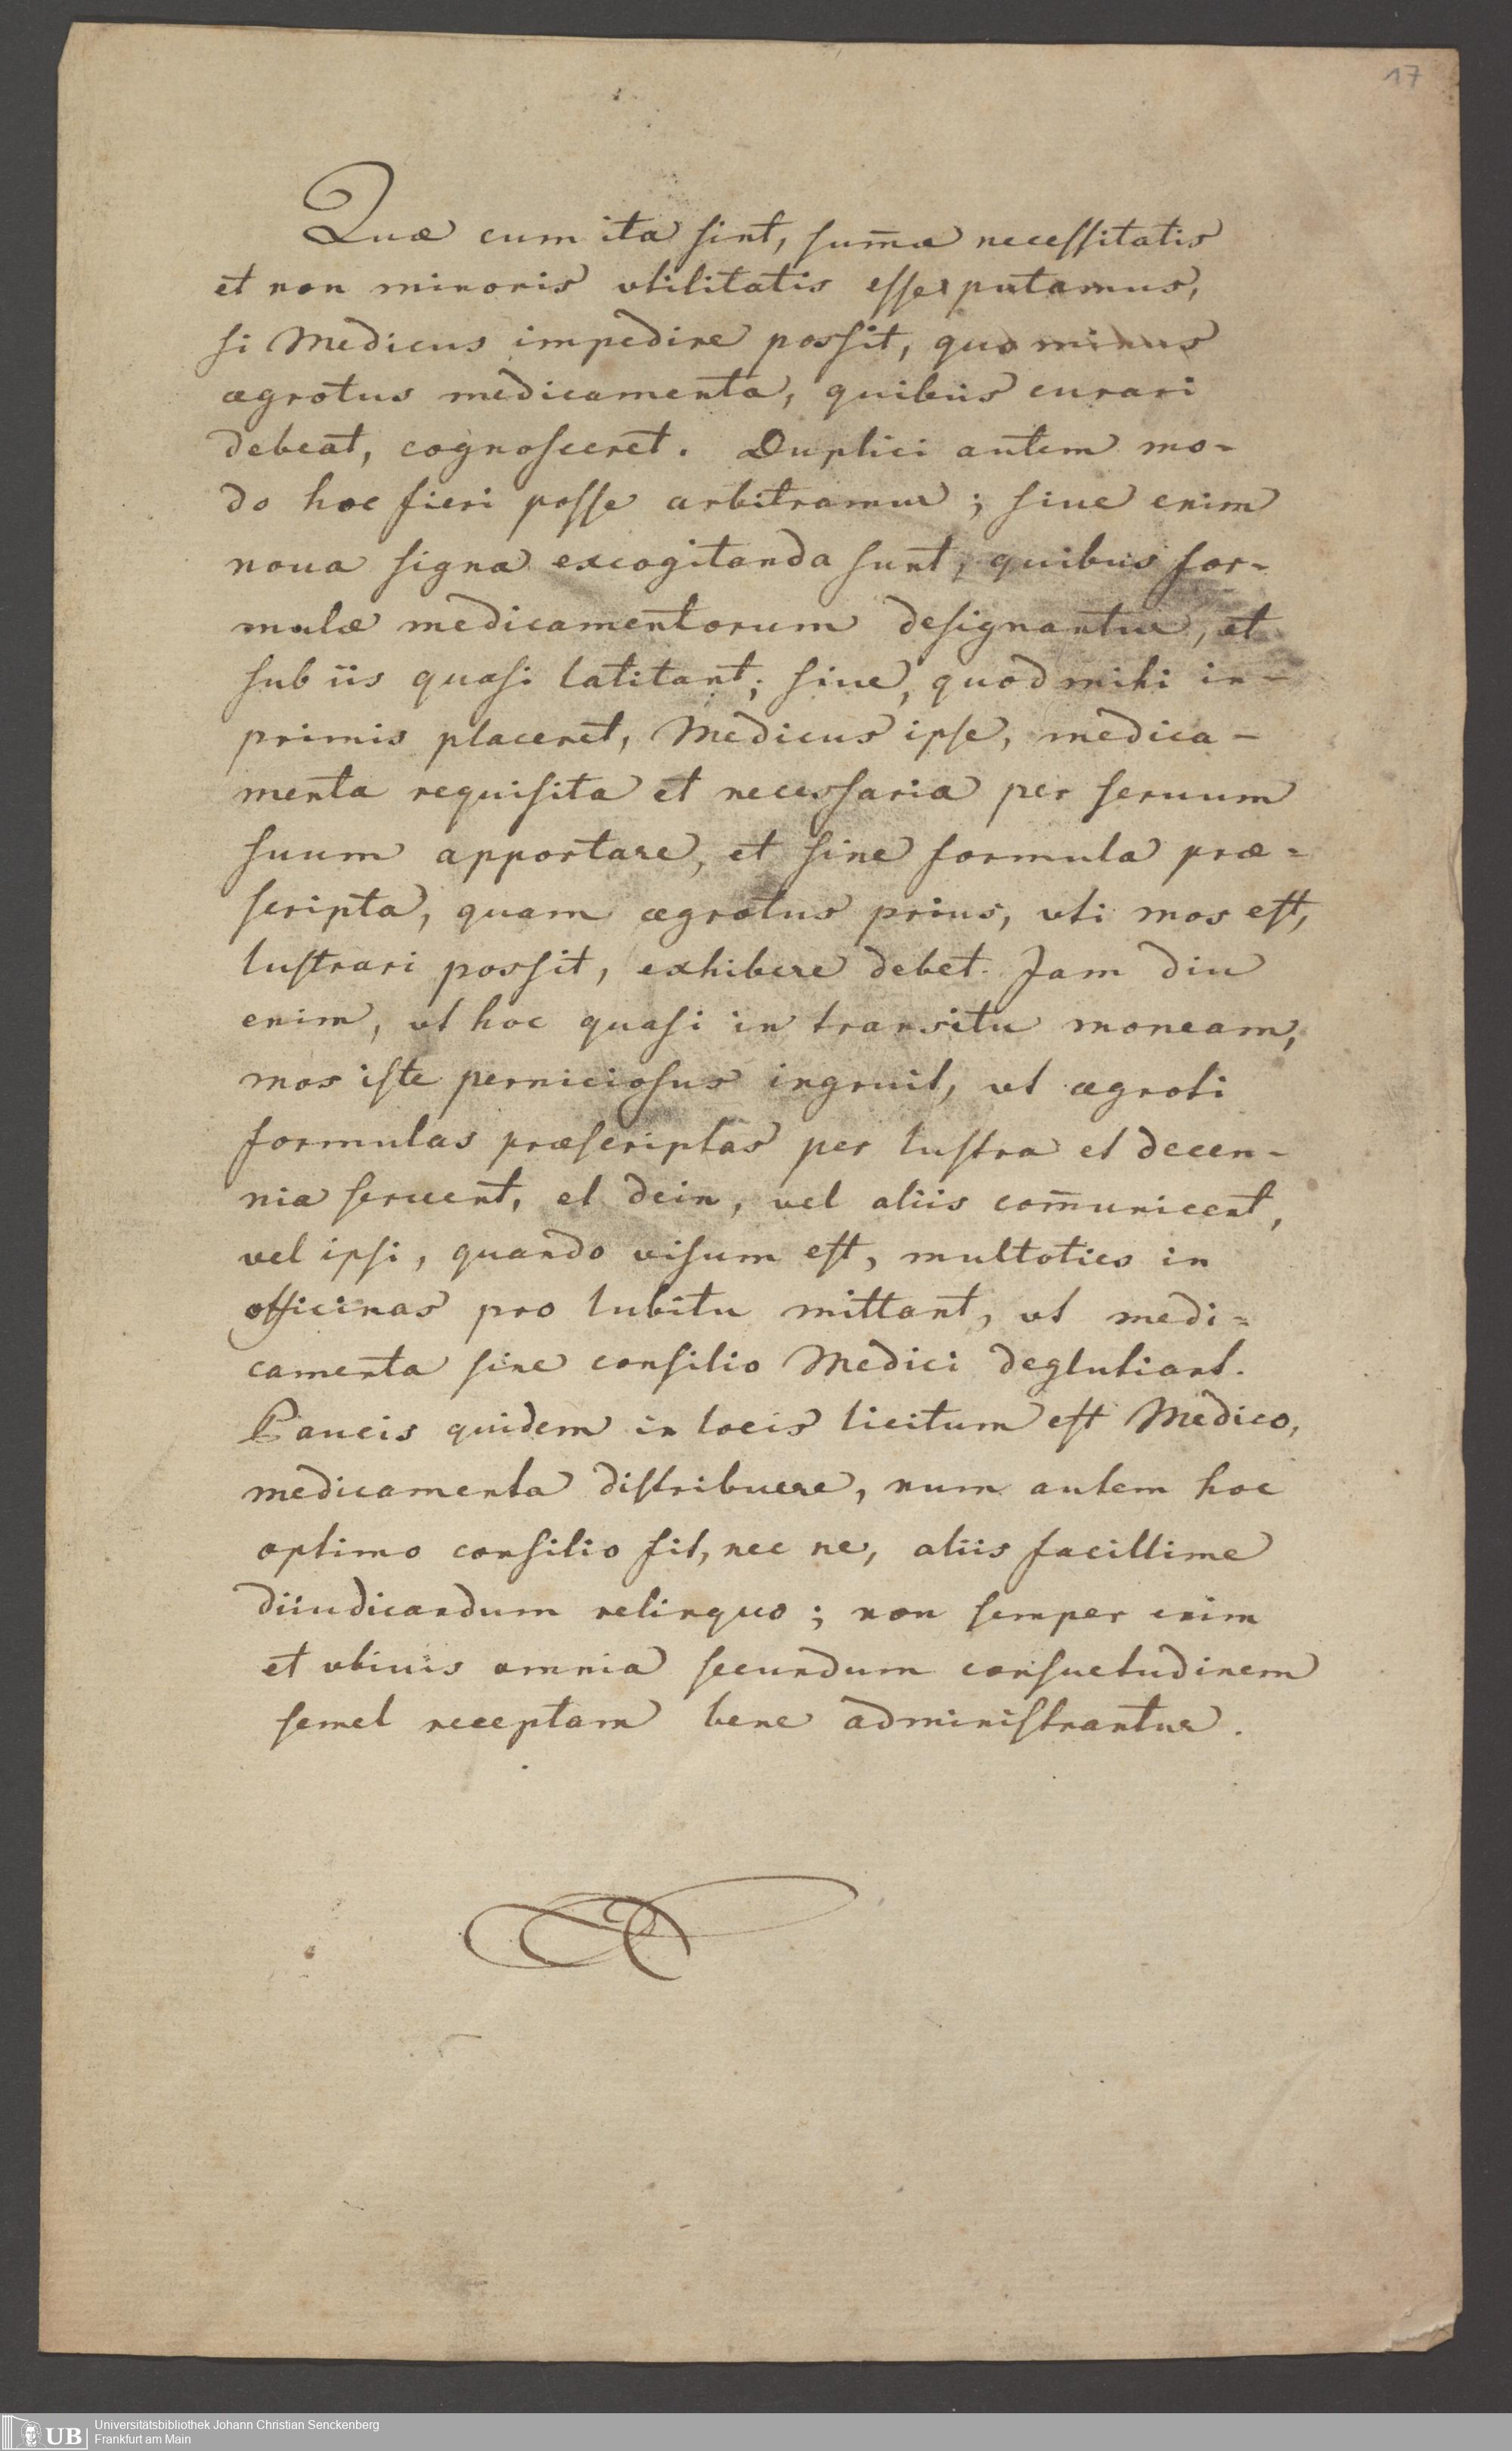 17
Quæ cum ita sint, sum̄æ necessitatis
et non minoris vtilitatis esse putamus,
si Medicus impedire possit, quo minus
ægrotus medicamenta, quibus curari
debeat, cognosceret. Duplici autem mo-
do hoc fieri posse arbitramur; siue enim
noua signa excogitanda sunt, quibus for-
mulæ medicamentorum designantur, et
sub iis quasi latitant; siue, quod mihi in-
primis placeret, Medicus ipse, medica-
menta requisita et necessaria per seruum
suum apportare, et sine formula præ-
scripta, quam ægrotus prius, vti mos est,
lustrari possit, exhibere debet. Jam diu
enim, vt hoc quasi in transitu moneam,
mos iste perniciosus ingruit, vt ægroti
formulas præscriptas per lustra et decen-
nia seruent, et dein, vel aliis com̄unicent,
vel ipsi, quando visum est, multoties in
officinas pro lubitu mittant, vt medi-
camenta sine consilio Medici deglutiant.
Paucis quidem in locis licitum est Medico,
medicamenta distribuere, num autem hoc
optimo consilio fit, nec ne, aliis facillime
diiudicandum relinquo; non semper enim
et vbiuis omnia secundum consuetudinem
semel receptam bene administrantur.
UB
Universitätsbibliothek Johann Christian Senckenberg
Frankfurt am Main